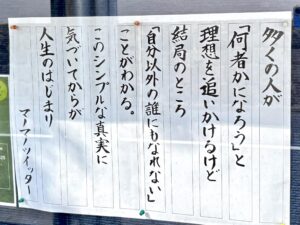 多くの人が
「何者かになろう」と
理想を追いかけるけど
結局のところ
「自分以外の誰にもなれない」
ことがわかる。
このシンプルな真実に
気づいてからが
人生のはじまり
マーマーツイッター